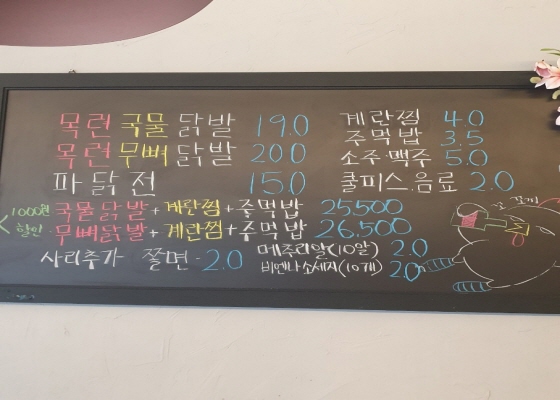 목련 국물 닭발 19.0
목련 무뼈 닭발 20.0
파 닭 전 15.0
계란찜 4.0
주먹밥 3.5
소주·맥주 5.0
쿨피스.음료 2.0
1000원 할인
국물닭발+계란찜+주먹밥 25,500
무뼈닭발+계란찜+주먹밥 26,500
사리추가 쫄면 - 2.0
메추리알(10알) 2.0
비엔나소세지(10개) 2.0